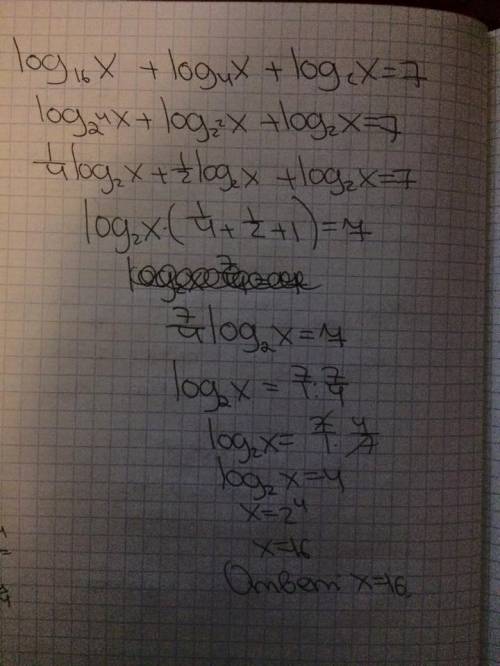 log₁₆x + log₄x + log₂x = 7
log₂⁴x + log₂²x + log₂x = 7
1/4 log₂x + 1/2 log₂x + log₂x = 7
log₂x · (1/4 + 1/2 + 1) = 7
7/4 log₂x = 7
log₂x = 7/1 : 7/4
log₂x = 7/1 · 4/7
log₂x = 4
x = 2⁴
x = 16
Ответ x = 16.